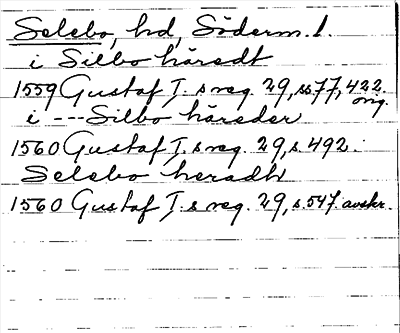 Selebo, hd, Söderm. l.
i Silbo häredt
1559 Gustaf I. s reg. 29, ss 77, 422.
orig.
i --- Silbo häreder
1560 Gustaf I. s reg. 29, s. 492.
Selebo heradh
1560 Gustaf I. s reg. 29, s. 547. avskr.